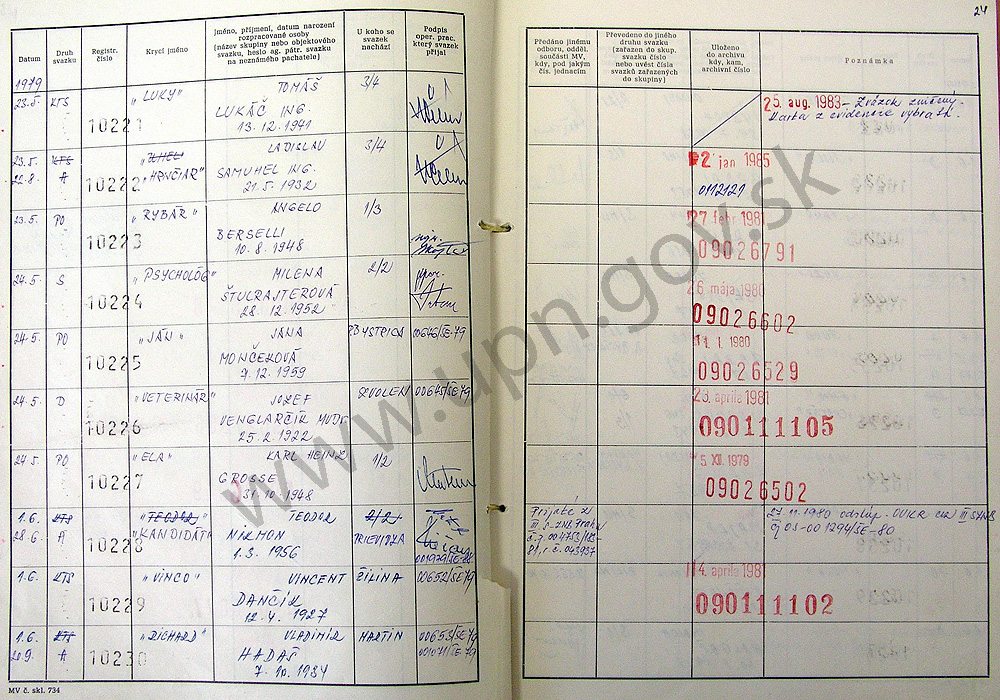 24
Datum
Druh
svazku
Registr.
číslo
Krycí jméno
Jméno, příjmení, datum narození
rozpracované osoby
(název skupiny nebo objektového
svazku, heslo ag. pátr. svazku
na neznámého pachatele)
U koho se
svazek
nachází
Podpis
oper. prac.
který svazek
přijal
Předáno jinému
odboru, odděl.
součásti MV,
kdy, pod jakým
čís. jednacím
Převedeno do jiného
druhu svazku
(zařazen do skup.
svazku
nebo uvést čísla
svazků zařazených
do skupiny)
Uloženo
do archívu
kdy, kam,
archivní číslo
Poznámka
1979
23.5. KTS 10221 „LUKY" TOMÁŠ 3/4
LUKÁČ ING.
13.12.1941
25. aug. 1983 - Zväzok zničený.
Karta z evidencie vybratá.
23.5. KTS LADISLAV 3/4
22.8. A 10222 „HRNČIAR" SAMUHEL ING.
21.5.1932
2 jan 1985
0112121
23.5. PO 10223 „RYBÁR" ANGELO 1/3
BERSELLI
10.8.1948
27 febr 1981
09026791
24.5. S 10224 „PSYCHOLÓG" MILENA 2/2
ŠTULRAJTEROVÁ
28.12.1952
26 mája 1980
09026602
24.5. PO 10225 „JÁN" JANA BYSTRICA 00646/SE-79
MONČEKOVÁ
7.12.1959
11. I. 1980
09026529
24.5. D 10226 „VETERINÁR" JOZEF ZVOLEN 00645/SE-79
VENGLARČÍK MVDr.
25.2.1922
23. apríla 1981
090111105
24.5. PO 10227 „ELA" KARL HEINZ 1/2
GROSSE
31.10.1948
5 XII. 1979
09026502
1.6. KTS „TEODOR" TEODOR 2/2
28.6. A 10228 „KANDIDÁT" NIKMON PRIEVIDZA
1.3.1956
27.11.1980 odstúp.
1.6. KTS 10229 „VINCO" VINCENT ŽILINA 00652/SE-79
DANČÍK
12.4.1927
14. apríla 1981
090111102
1.6. KTS „RICHARD" VLADIMÍR MARTIN 00653/SE-79
20.9. A 10230 HADAŠ 001071/SE-79
7.10.1934
MV č. skl. 734
www.upn.gov.sk